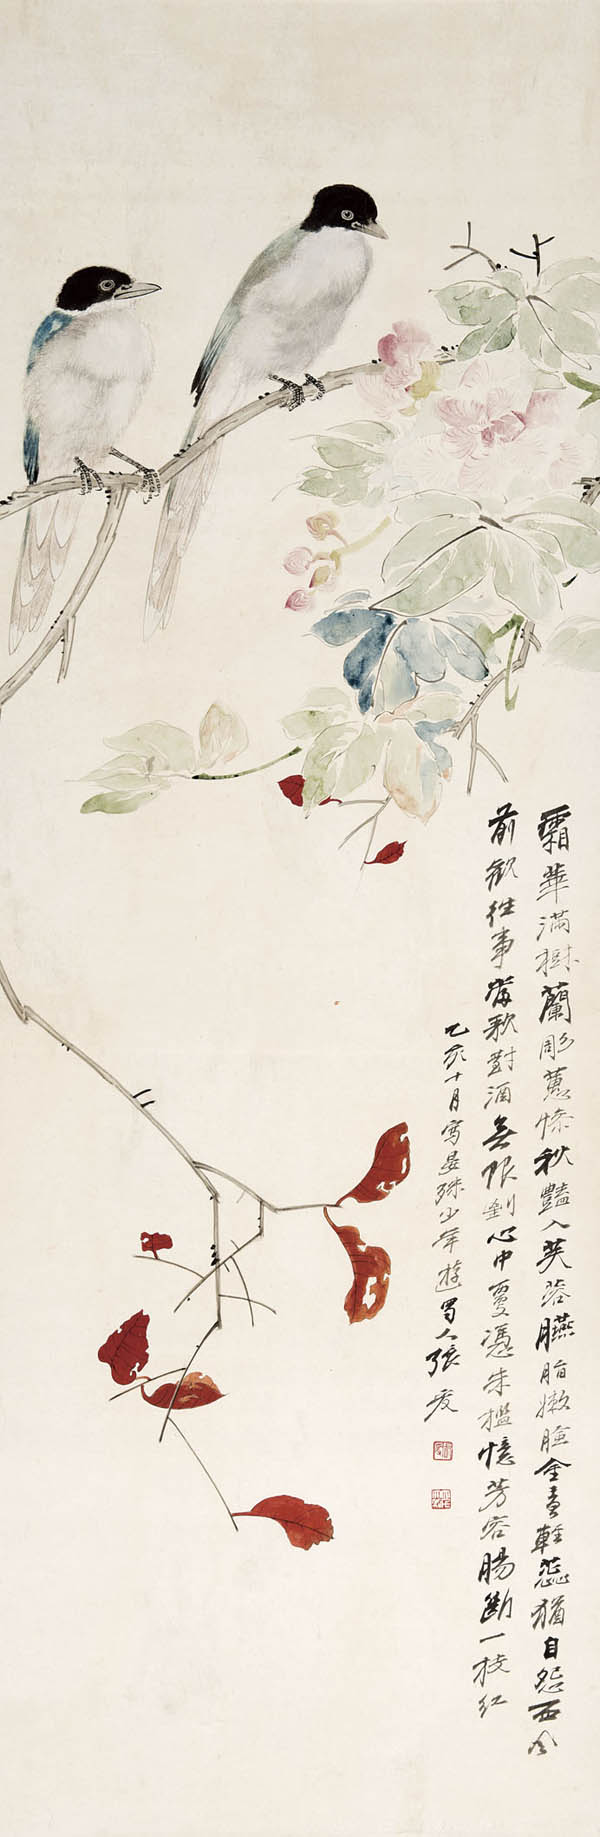 霜華滿樹蘭彫蕙慘秋豔入芙蓉臙脂嫩臉金黃輕蕊猶自怨西風
前歡往事當歌對酒無限到心中更憑朱檻憶芳容腸斷一枝紅
乙亥十月寫晏殊少年遊蜀人張爰